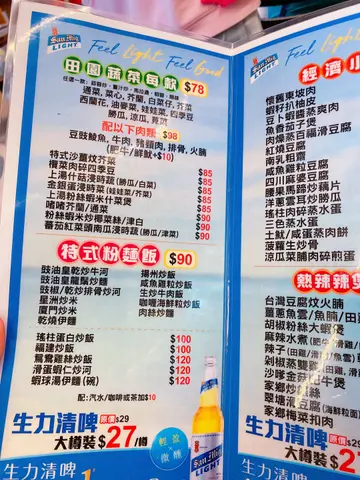 San Mig
LIGHT
Feel Light Feel Good
田園蔬菜每款 $78
通菜, 菜心, 芥蘭, 白菜仔, 芥菜
西蘭花, 油麥菜, 娃娃菜, 四季豆
勝瓜, 涼瓜, 莧菜
配以下肉類 $98
豆豉鯪魚, 牛肉, 豬頸肉, 排骨, 火腩
(肥牛/鮮魷+$10)
特式沙薑炆芥菜 $85
欖菜肉碎四季豆 $85
上湯杞菜浸時蔬(勝瓜/白菜) $85
金銀蛋浸時菜(娃娃菜/芥菜) $85
上湯粉絲蝦米什菜煲 $85
啫啫芥蘭/通菜 $90
粉絲蝦米炒椰菜絲/津白 $90
番茄紅菜頭南瓜浸時蔬(勝瓜/津菜) $90
特式粉麵飯 $90
豉油皇乾炒牛河
豉油皇龍鬚炒麵
豉椒/乾炒排骨炒河
星洲炒米
廈門炒米
乾燒伊麵
揚州炒飯
咸魚雞粒炒飯
生炒牛肉飯
咖喱海鮮粒炒飯
肉絲炒麵
瑤柱蛋白炒飯 $100
福建炒飯 $100
鴛鴦雞絲炒飯 $120
滑蛋蝦仁炒河 $120
蝦球湯伊麵(碗) $120
配: 汽水/咖啡或茶加$10
生力清啤 原價$29
大樽裝 $27/樽
輕盈
微醺
San Mig
LIGHT
生力清啤
San Mig
LIGHT
Feel
經濟小
懷舊東坡肉
蝦籽扒柚皮
豆卜蝦醬蒸爽肉
魚香茄子煲
肉燥蒸百福滑豆腐
紅燒豆腐
南乳粗齋
咸魚雞粒豆腐
四川麻婆豆腐
腰果馬蹄炒藕片
洋蔥雲耳炒勝瓜
瑤柱肉碎蒸豆腐
三色蒸水蛋
土魷/咸蛋蒸肉餅
菠蘿生炒骨
涼瓜菜脯肉碎煎蛋
熱辣辣煲
台灣豆腐炆火腩
薑蔥魚雲/魚腩/田雞
胡椒粉絲大蝦煲
麻辣水煮(肥牛
辣子(田雞/
剁椒蒸雙
沙嗲金菇肥牛煲
家鄉
翠塘滑豆腐(海鮮粒面)
家鄉梅菜扣肉
生力清啤 原價$29
大樽裝 $2